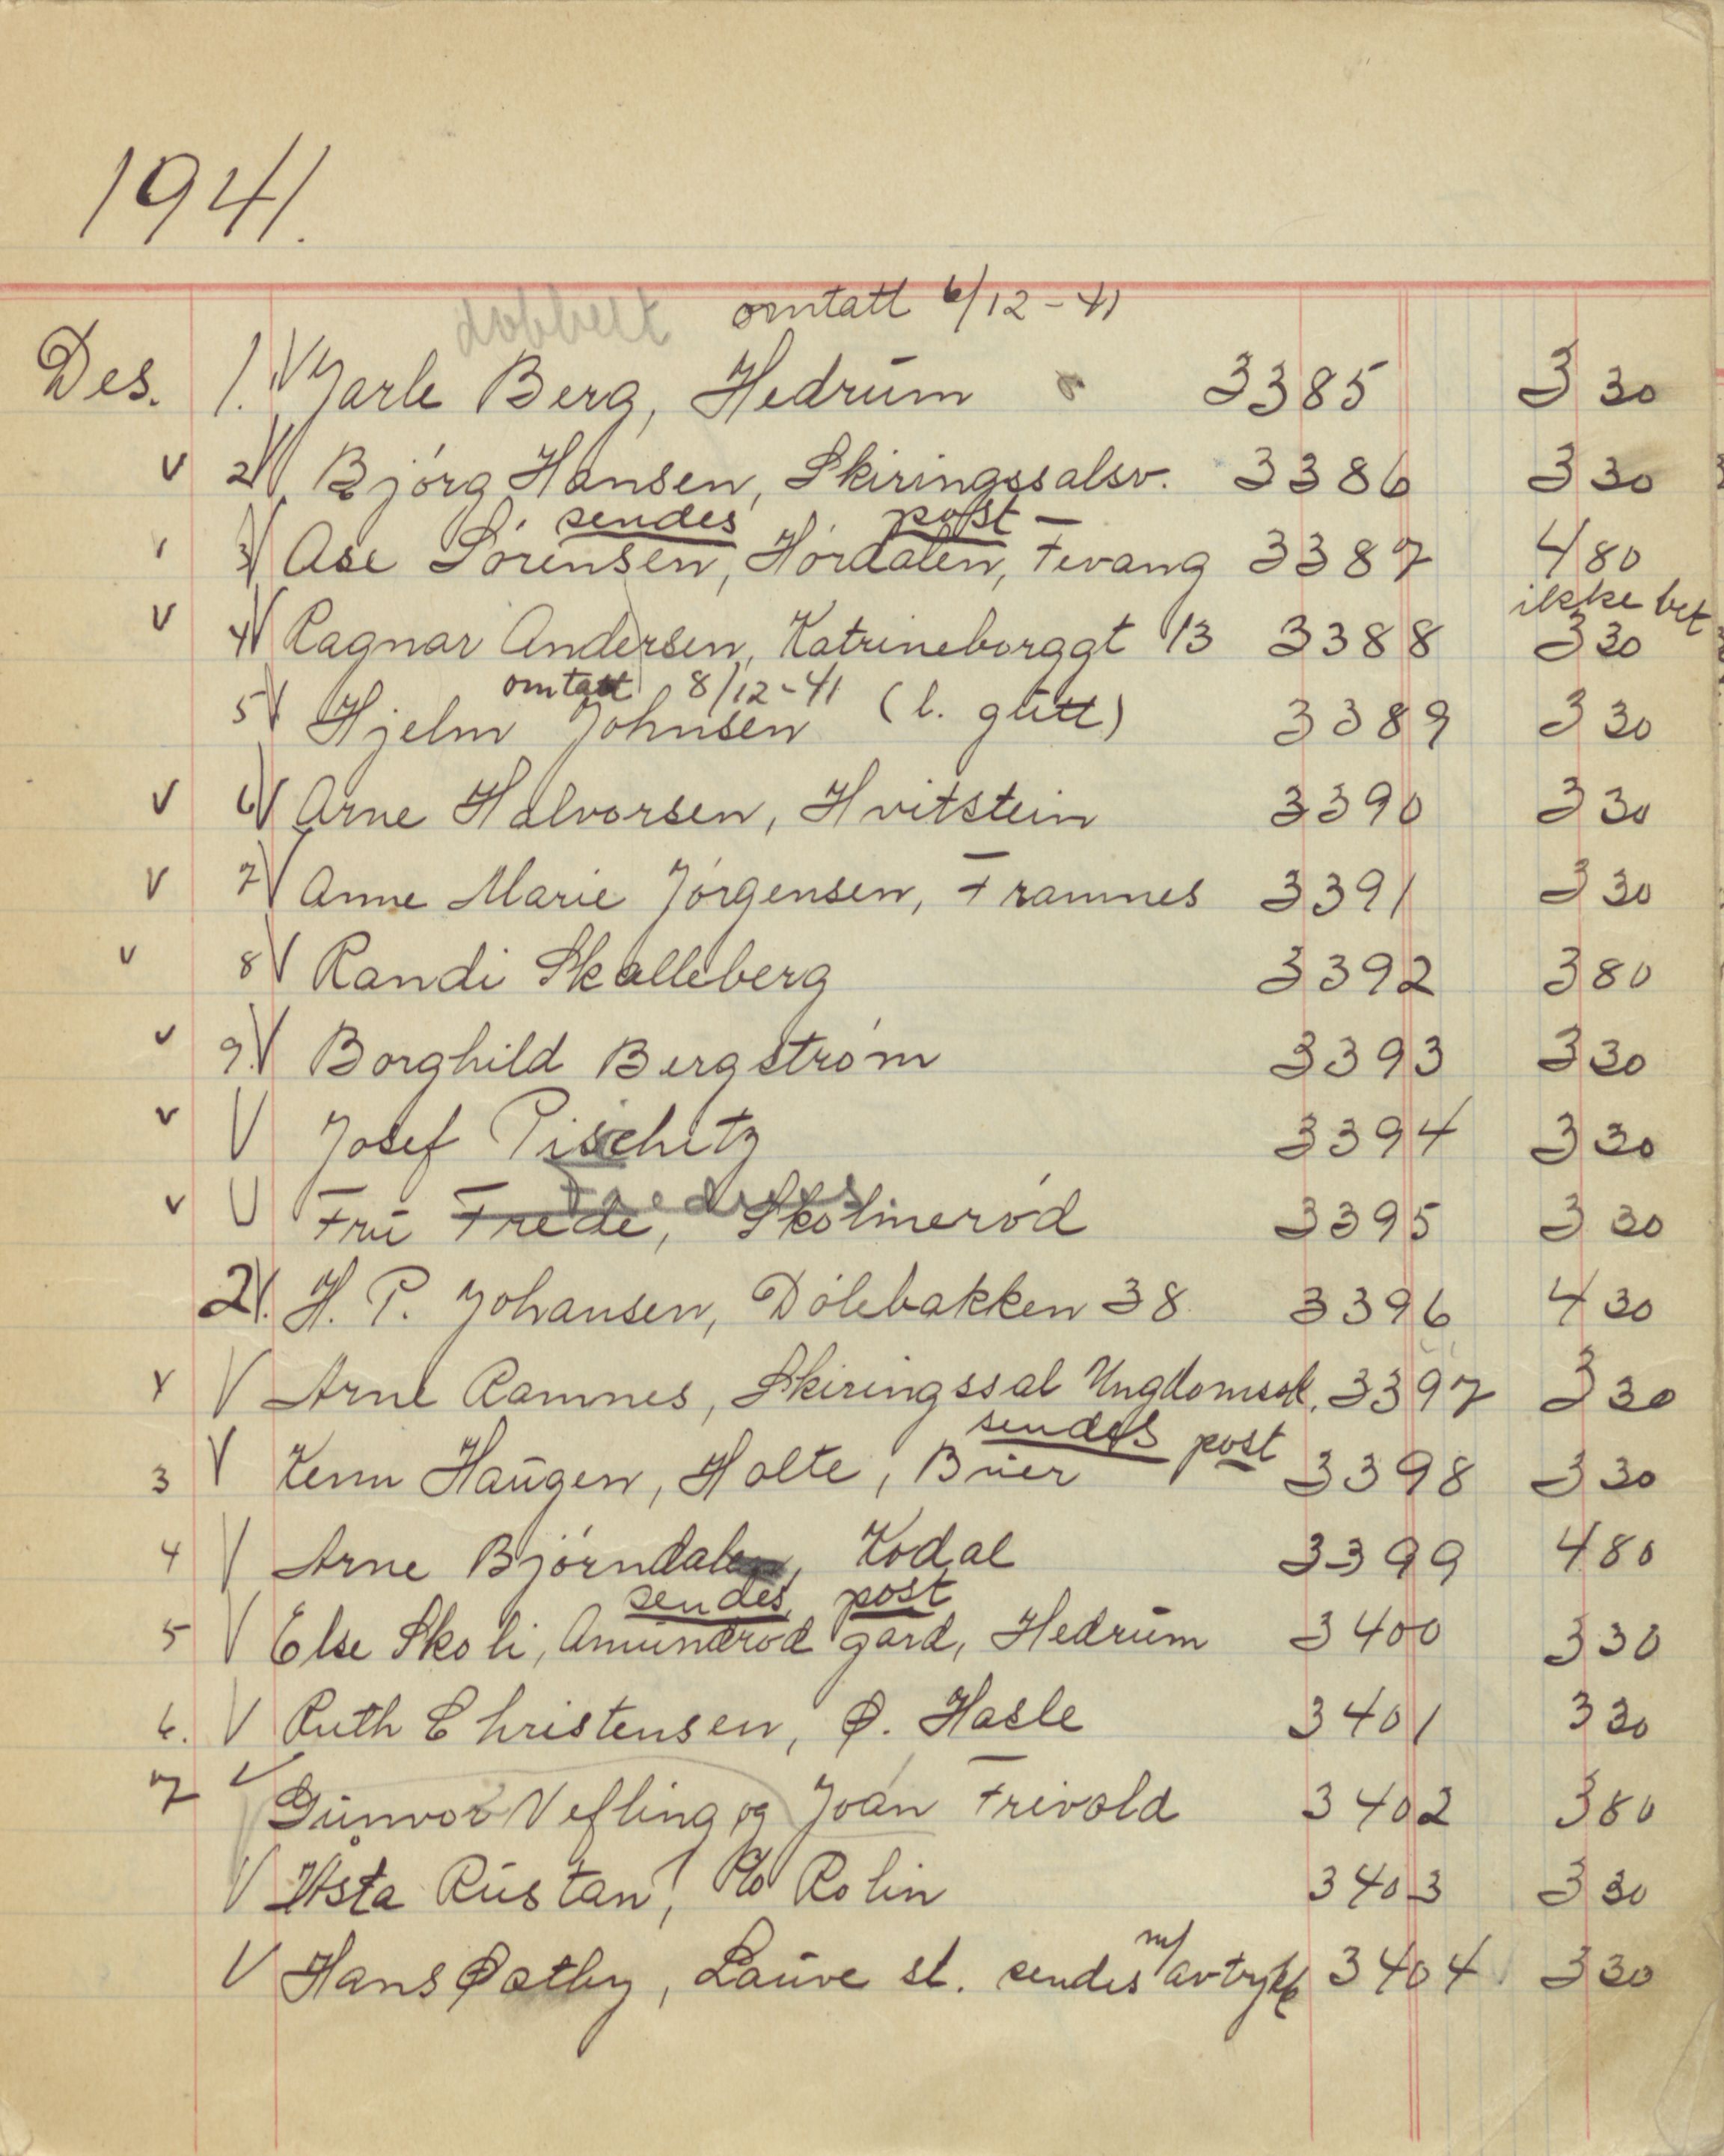 1941.
dobbelt omtatt 6/12-41
Des. 1. V Jarle Berg, Hedrum 3385 3 30
v 2 V Bjørg Hansen, Skiringssalsv. 3386 3 30
sendes post -
3 V Åse Sørensen, Hørdalen, Fevang 3387 4 80
ikke bet
v 4 V Ragnar Andersen, Katrineborggt 13 3388 3 30
omtatt 8/12-41
5 V Hjelm Johnsen (l. gutt) 3389 3 30
v 6 V Arne Halvorsen, Hvitstein 3390 3 30
v 7 V Anne Marie Jørgensen, Framnes 3391 3 30
v 8 V Randi Skalleberg 3392 3 80
v 9. V Borghild Bergstrøm 3393 3 30
v V Josef Pischitz 3394 3 30
v V Fru Frede, Skolmerød 3395 3 30
2 V. H. P. Johansen, Dölebakken 38 3396 4 30
v V Arne Ramnes, Skiringssal Ungdomssk. 3397 3 30
sendes post
3 V Kenn Haugen, Holte, Buer 3398 3 30
4 V Arne Bjørndalen, Kodal 3399 4 80
sendes post
5 V Else Skoli, Amundrød gård, Hedrum 3400 3 30
6. V Ruth Christensen, Ø. Hasle 3401 3 30
7 V Gunvor Vefling og Joan Frivold 3402 3 80
V Åsta Rustan, c/o Rolin 3403 3 30
m/
V Hans Østby, Lauve st. sendes avtrykk 3404 3 30